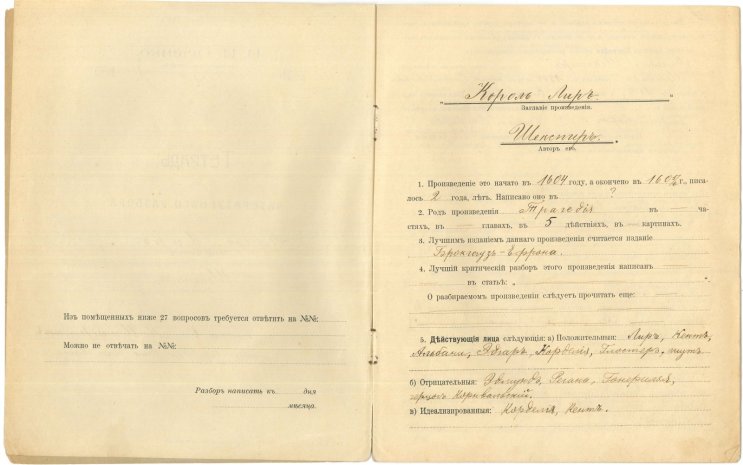 Изъ помѣщенныхъ ниже 27 вопросовъ требуется отвѣтить на №№:
Можно не отвѣчать на №№:
Разборъ написать къ дня
мѣсяца.
„Король Лиръ.“
Заглавіе произведенія.
Шекспиръ.
Авторъ его.
1. Произведеніе это начато въ 1604 году, а окончено въ г., писа-
лось 2 года, лѣтъ. Написано оно въ ?
2. Родъ произведенія Трагедія въ — ча-
стяхъ, въ — главахъ, въ 5 дѣйствіяхъ, въ — картинахъ.
3. Лучшимъ изданіемъ даннаго произведенія считается изданіе
Брокгаузъ-Ефрона.
4. Лучшій критическій разборъ этого произведенія написанъ —
— въ статьѣ: „ “
О разбираемомъ произведеніи слѣдуетъ прочитать еще: —
5. Дѣйствующія лица слѣдующія: а) Положительныя: Лиръ, Кентъ,
Альбани, Эдгаръ, Корделія, Глостеръ, шутъ
б) Отрицательныя: Эдмундъ, Регана, Гонерилья,
герцогъ Корнвальскій.
в) Идеализированныя: Корделія, Кентъ.